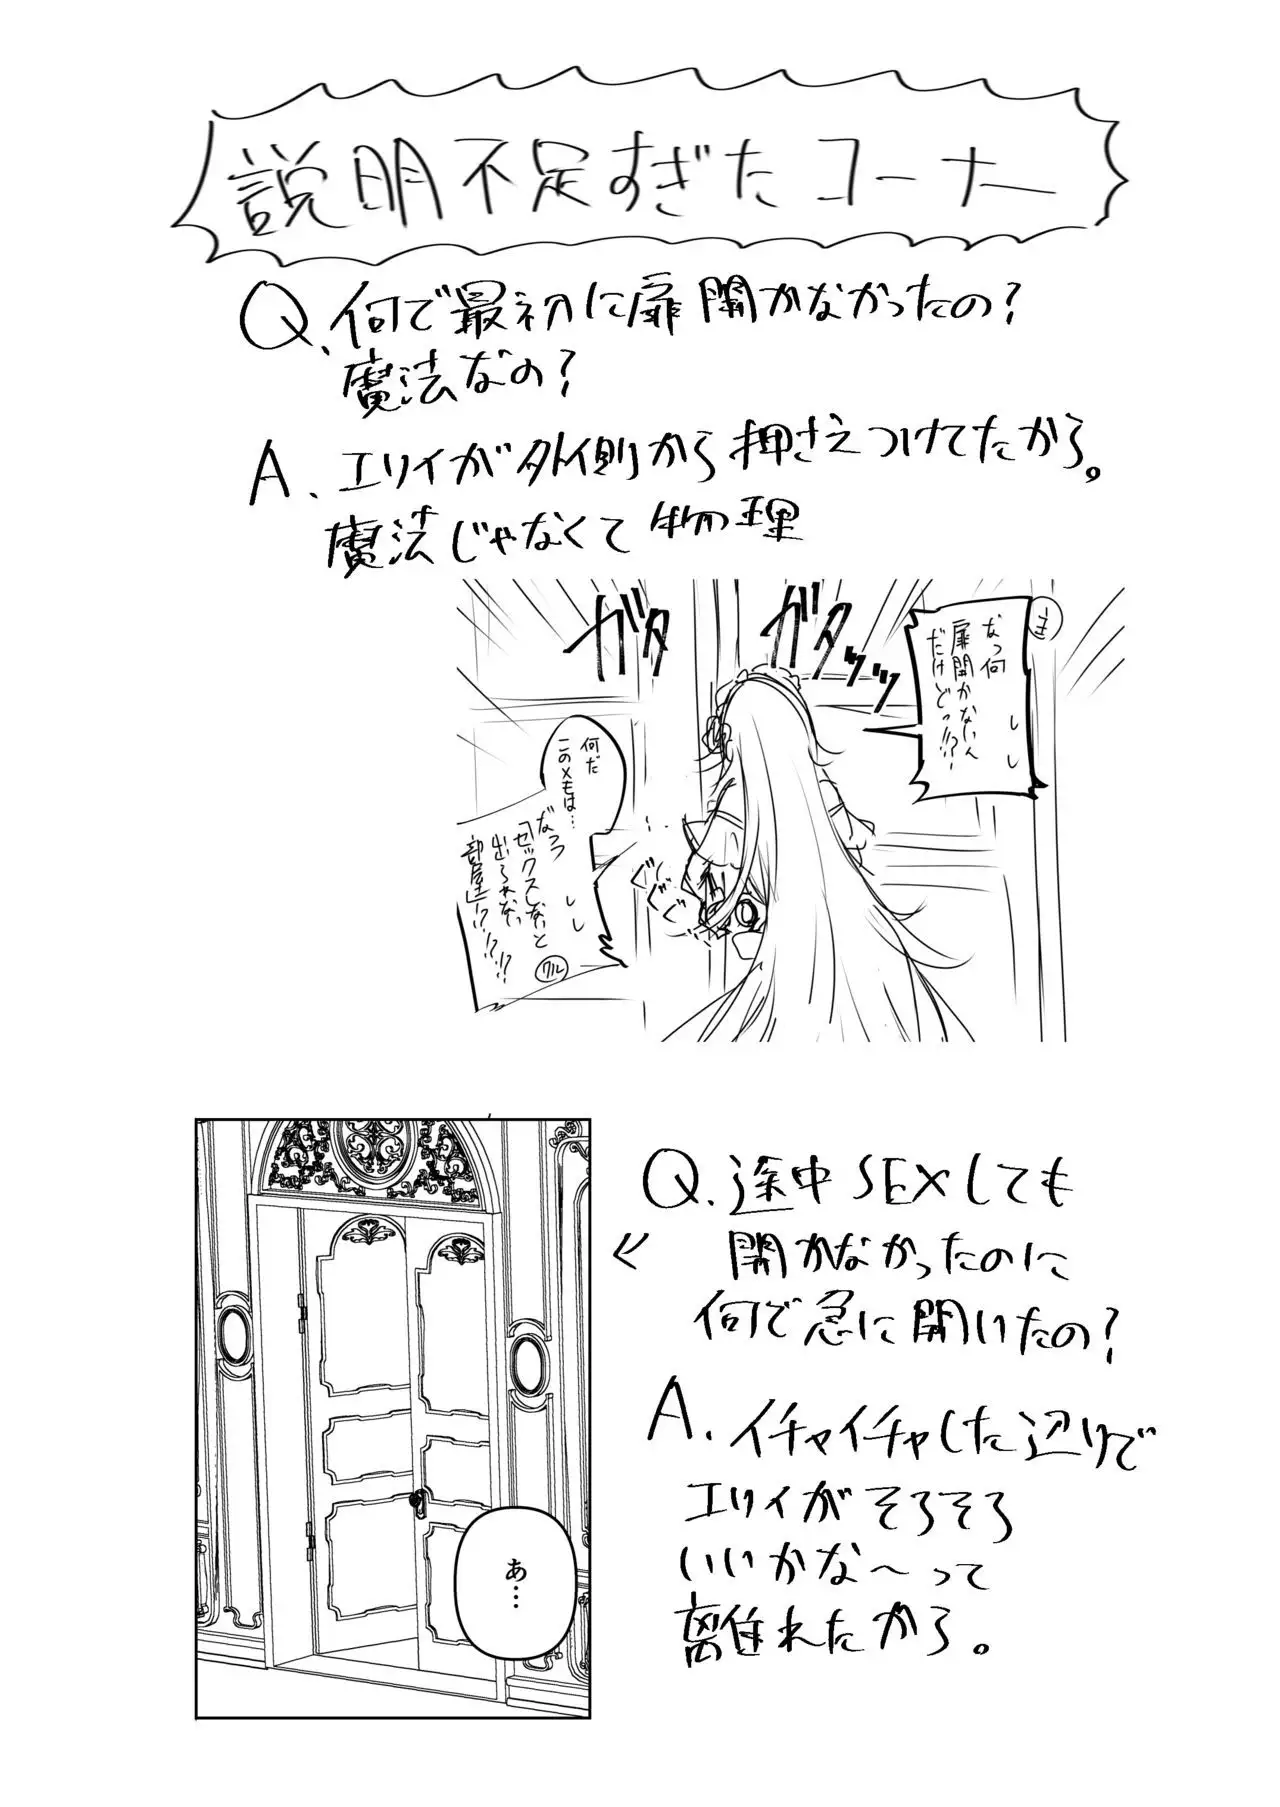 説明不足すぎたコーナー
Q、何で最初に扉開かなかったの?
魔法なの?
A、エリイが外側から押さえつけてたから。
魔法じゃなくて物理
ガタ
ガタッッッ
なっ何
扉開かないん
だけどっ!!?!
何だ
このメモは…
だっって
「セックスしないと
出られない
部屋」!?!?!?
クル
ぐぐぐ…
Q.途中SEXしても
開かなかったのに
何で急に開いたの?
A.イチャイチャした辺りで
エリイがそろそろ
いいかな〜って
離れたから。
あ…